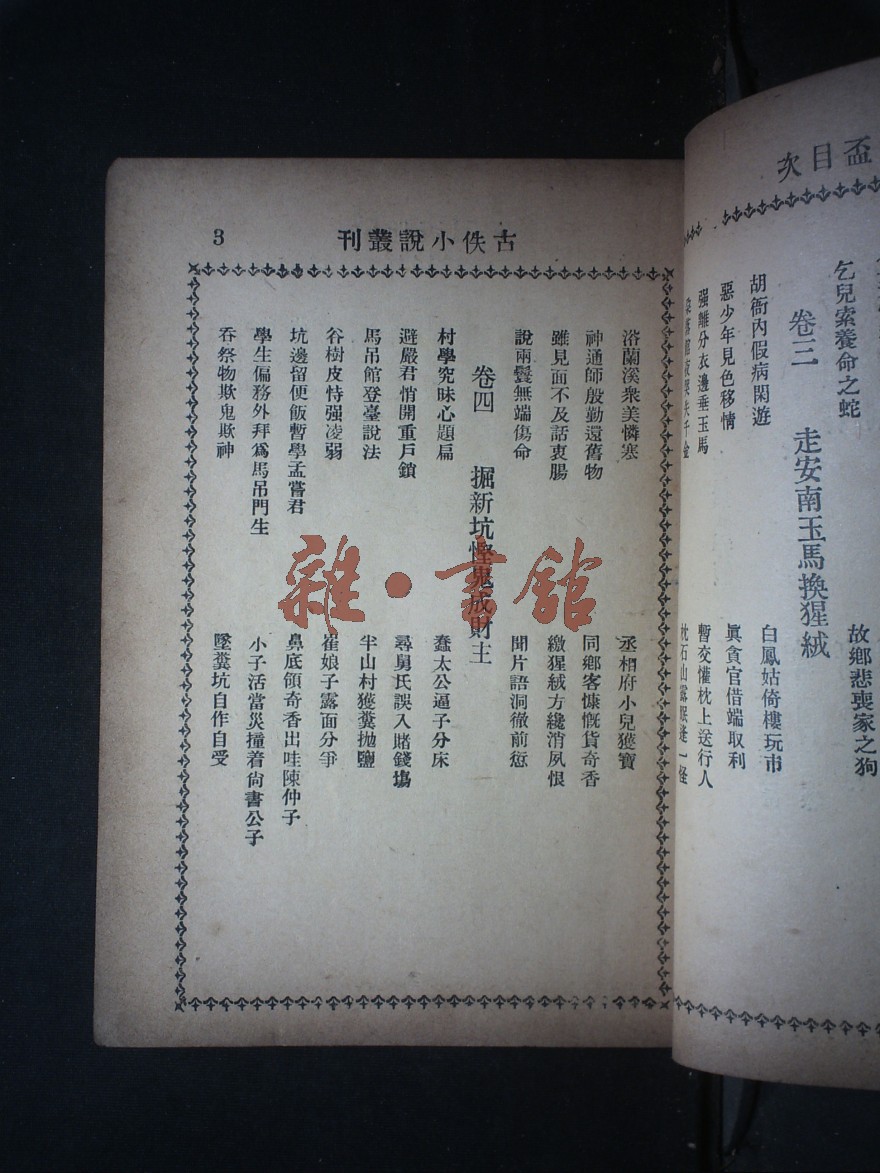 盃目次
乞兒索養命之蛇
故鄉悲喪家之狗
卷三 走安南玉馬換猩絨
胡衙內假病閑遊
白鳳姑倚樓玩市
惡少年見色移情
眞貪官借端取利
强離分衣邊垂玉馬
暫交懽枕上送行人
枕石山露眠逢一怪
古佚小說叢刊
3
浴蘭溪衆美憐寒
丞相府小兒獲寶
神通師殷勤還舊物
同鄉客慷慨貨奇香
雖見面不及話衷腸
繳猩絨方纔消夙恨
說兩鬢無端傷命
聞片語洞徹前愆
卷四 掘新坑慳鬼成財主
村學究昧心題扁
蠢太公逼子分床
避嚴君悄開重戶鎖
尋舅氏誤入賭錢場
馬吊館登臺說法
半山村獲糞拋鹽
谷樹皮恃强凌弱
崔娘子露面分爭
坑邊留便飯暫學孟嘗君
鼻底領奇香出哇陳仲子
學生偏務外拜爲馬吊門生
小子活當災撞着尙書公子
吞祭物欺鬼欺神
墜糞坑自作自受
雜·書館